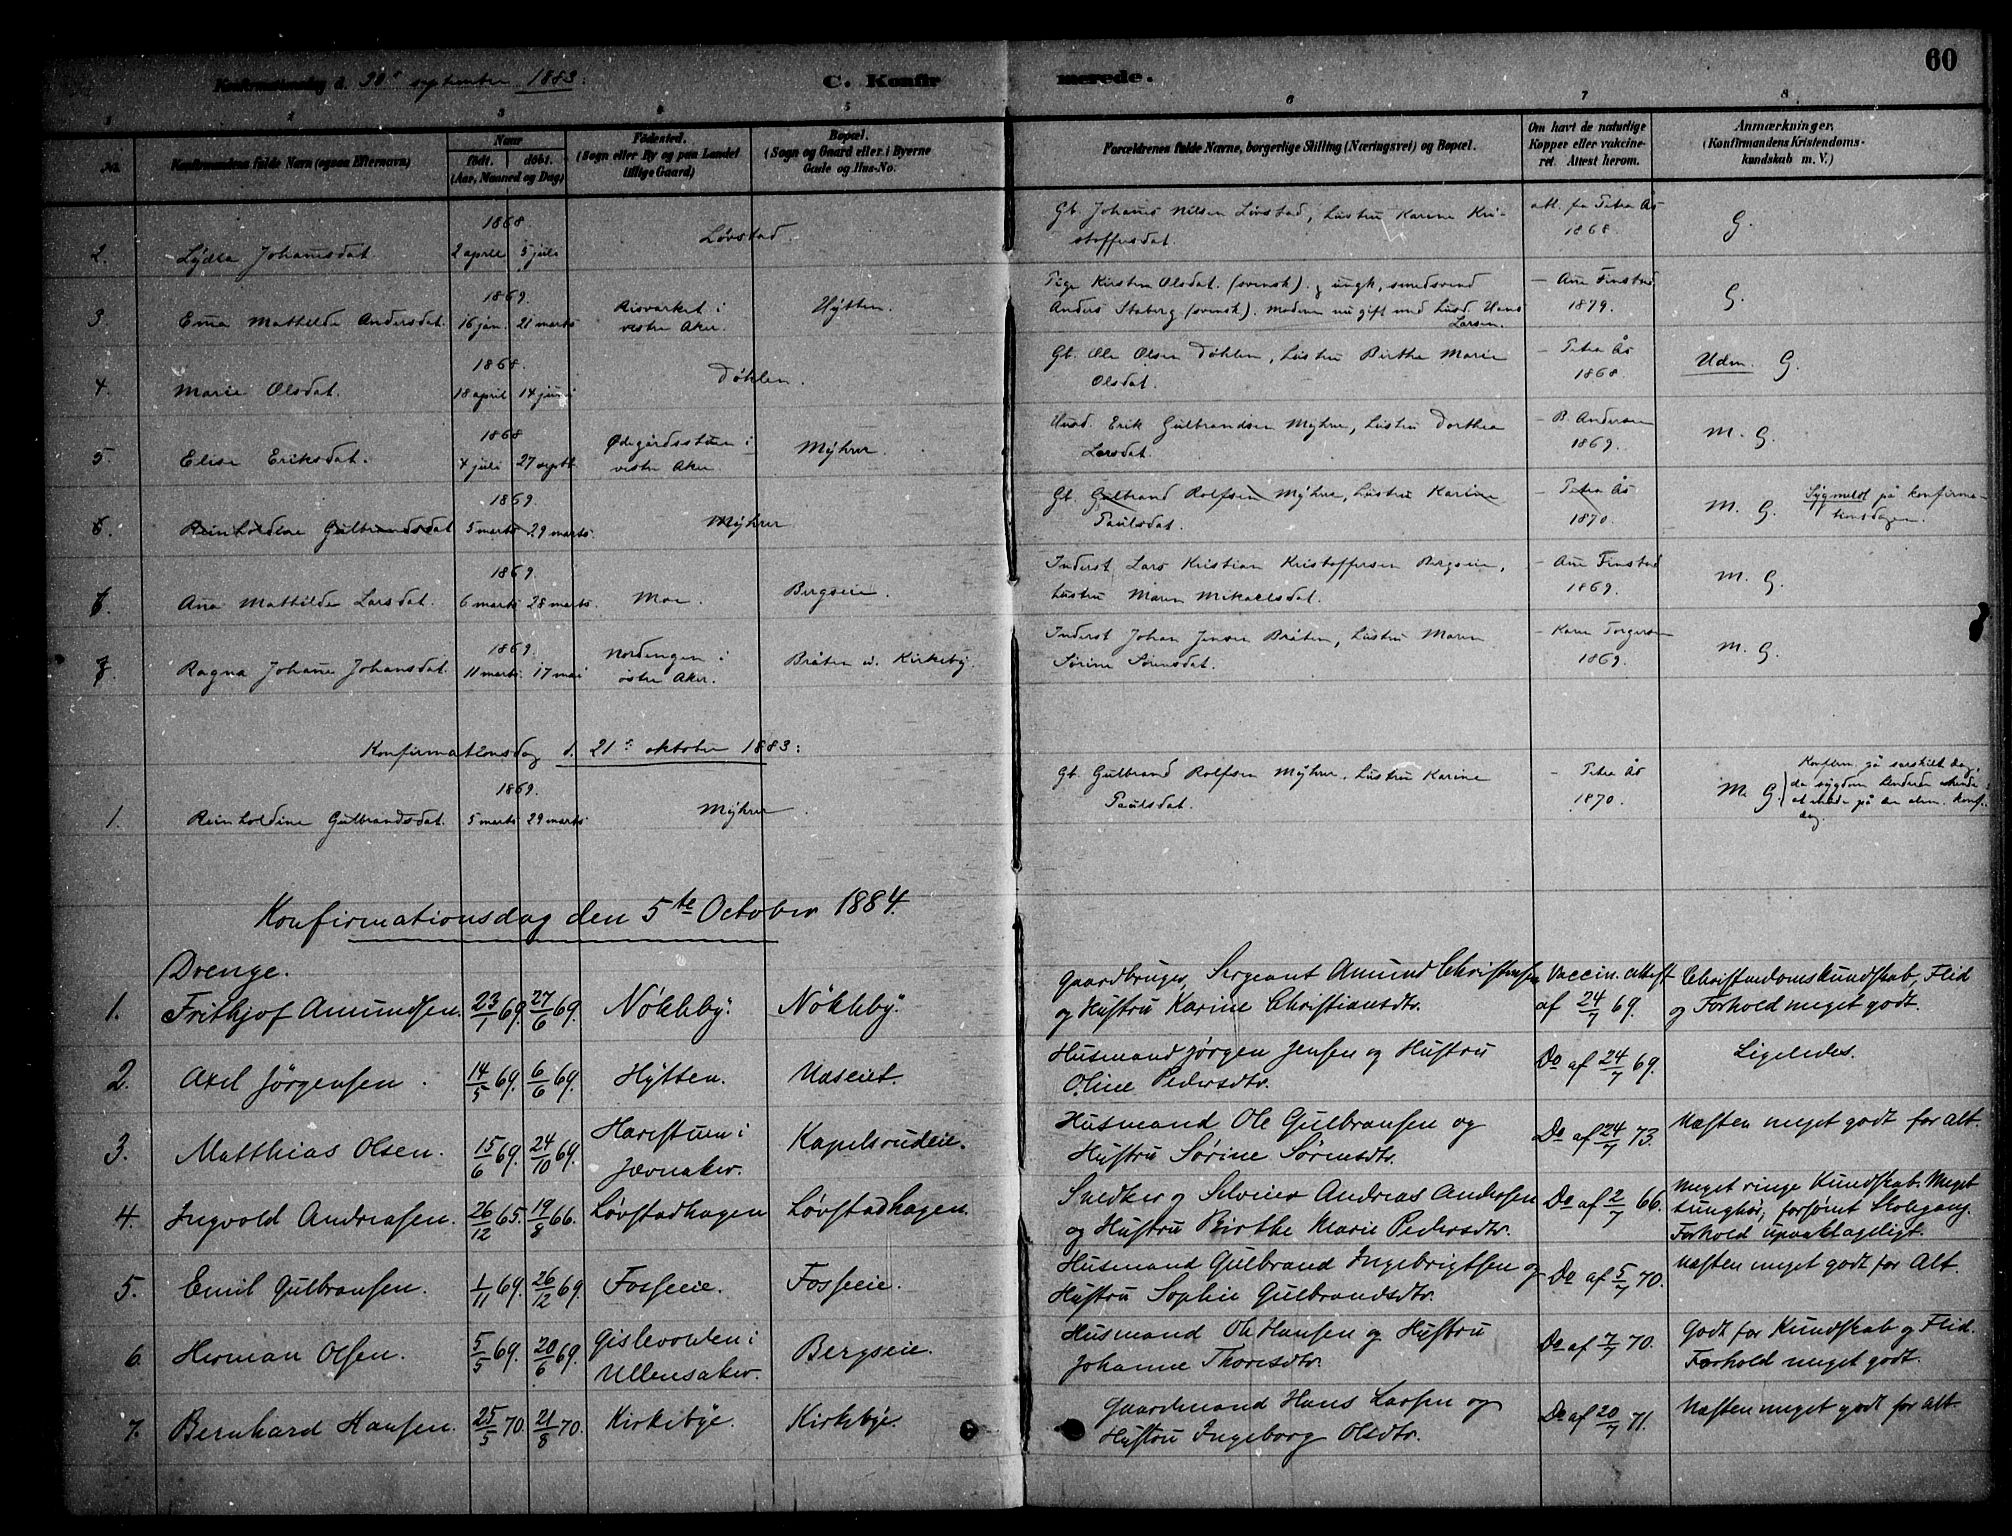 60
Konfirmationsdag d. 30te september 1883:
C. Konfirmerede.
1 2 3 4 5 6 7 8
No. Konfirmandens fulde Navn (ogsaa Efternavn)
Naar
födt. döbt.
(Aar, Maaned og Dag)
Födested.
(Sogn eller By og paa Landet
tillige Gaard)
Bopæl.
(Sogn og Gaard eller i Byerne
Gade og Hus-No.
Forældrenes fulde Navne, borgerlige Stilling (Næringsvei) og Bopæl.
Om havt de naturlige
Kopper eller vakcine-
ret. Attest herom.
Anmærkninger.
(Konfirmandens Kristendoms-
kundskab m. V.)
1868. Gb. Johanes Nilsen Lövstad, hustru Karine Kri- att. fra Petra Ås
2. Lydia Johanesdat. 2 april 5 juli Lövstad. stoffersdat. 1868. G.
1869. Risvarket i Hytten. Pige Kirsten Olsdat. (svensk). og ungk. smedsvend – Ane Finstad
3. Ema Mathilde Andersdat. 16 jan. 21 marts vestre Aker. Anders Staberg (svensk). Moderen nu gift med husd. Hans Larsen. 1879. G.
1868. Gb. Ole Olsen Döhlen, hustru Birthe Marie – Petra Ås
4. Marie Olsdat. 18 april 14 juni Döhlen. Olsdat. 1868. Udm. G.
1868 Ødegårdsstuen i Husd. Erik Gulbrandsen Myhrer, hustru Dorthea – B. Andersen
5. Elise Eriksdat. 4 juli 27 septb. vestre Aker. Myhrer. Larsdat. 1869. M. G.
1869. Gb. Gulbrand Rolfsen Myhrer, hustru Karine – Petra Ås Sygmeldt på konfirma-
6. Reinholdine Gulbrandsdat 5 marts 29 marts. Myhrer Paulsdat. 1870. M. G. tionsdagen.
1869. Inderst Lars Kristian Kristoffersen Bergseie, – Ane Finstad
6. Ana Mathilde Larsdat. 6 marts 28 marts. Moe. Bergseie. hustru Maren Mikaelsdat. 1869. M. G.
1869. Nordengen i Inderst Johan Jensen Bråten, hustru Maren – Karen Torgersen
7. Ragna Johane Johansdat. 11 marts. 17 mai östre Aker. Bråten u. Kirkeby. Sörine Sörensdat. 1869. M. G.
Konfirmationsdag d. 21de oktober 1883:
1869. Gb. Gulbrand Rolfsen Myhrer, hustru Karine – Petra Ås Konfirm. på særskilt dag,
1. Reinholdine Gulbrandsdat. 5 marts 29 marts Myhrer. Paulsdat. 1870. M. G. da sygdom hindrede hende i
at möde på den alm. konf.
dag.
Konfirmationsdag den 5te October 1884.
Drenge. Gaardbruger, Sergeant Amund Christensen Vaccin. attest Christendomskundskab, Flid
1. Frithjof Amundsen. 23/1 69. 27/6 69. Nökleby. Nökleby. og Hustru Karine Christiansdtr. af 24/7 69. og Forhold meget godt.
Husmand Jörgen Jensen og Hustru
2. Axel Jörgensen. 14/5 69. 6/6 69. Hytten. Aaseiet. Oline Pedersdtr. Do af 24/7 69. Ligeledes.
Harestuen i Husmand Ole Gulbransen og
3. Matthias Olsen. 15/6 69. 24/10 69. Jævnaker. Kapelsrudeie. Hustru Sörine Sörensdtr. Do af 24/7 73. Næsten meget godt for Alt.
Snedker og Selveier Andreas Andersen meget ringe Kundskab. Meget
4. Ingvold Andreasen. 26/12 65. 19/8 66. Lövstadhagen Lövstadhagen. og Hustru Birthe Marie Pedersdtr. Do af 2/7 66. tunghör, forsömt Skolegang.
Forhold upaaklageligt.
Husmand Gulbrand Ingebrigtsen og
5. Emil Gulbransen. 1/11 69. 26/12 69. Fosseie. Fosseie. Hustru Sophie Gulbrandsdtr. Do af 5/7 70. Næsten meget godt for Alt.
Gislevolden i Husmand Ole Hansen og Hustru Godt for Kundskab og Flid.
6. Herman Olsen. 5/5 69. 20/6 69. Ullensaker. Bergseie. Johanne Thoresdtr. Do af 7/7 70. Forhold meget godt.
Gaardmand Hans Larsen og
7. Bernhard Hansen. 25/5 70. 21/8 70. Kirkebye. Kirkebye. Hustru Ingeborg Olsdtr. Do af 20/7 71. Næsten meget godt for Alt.